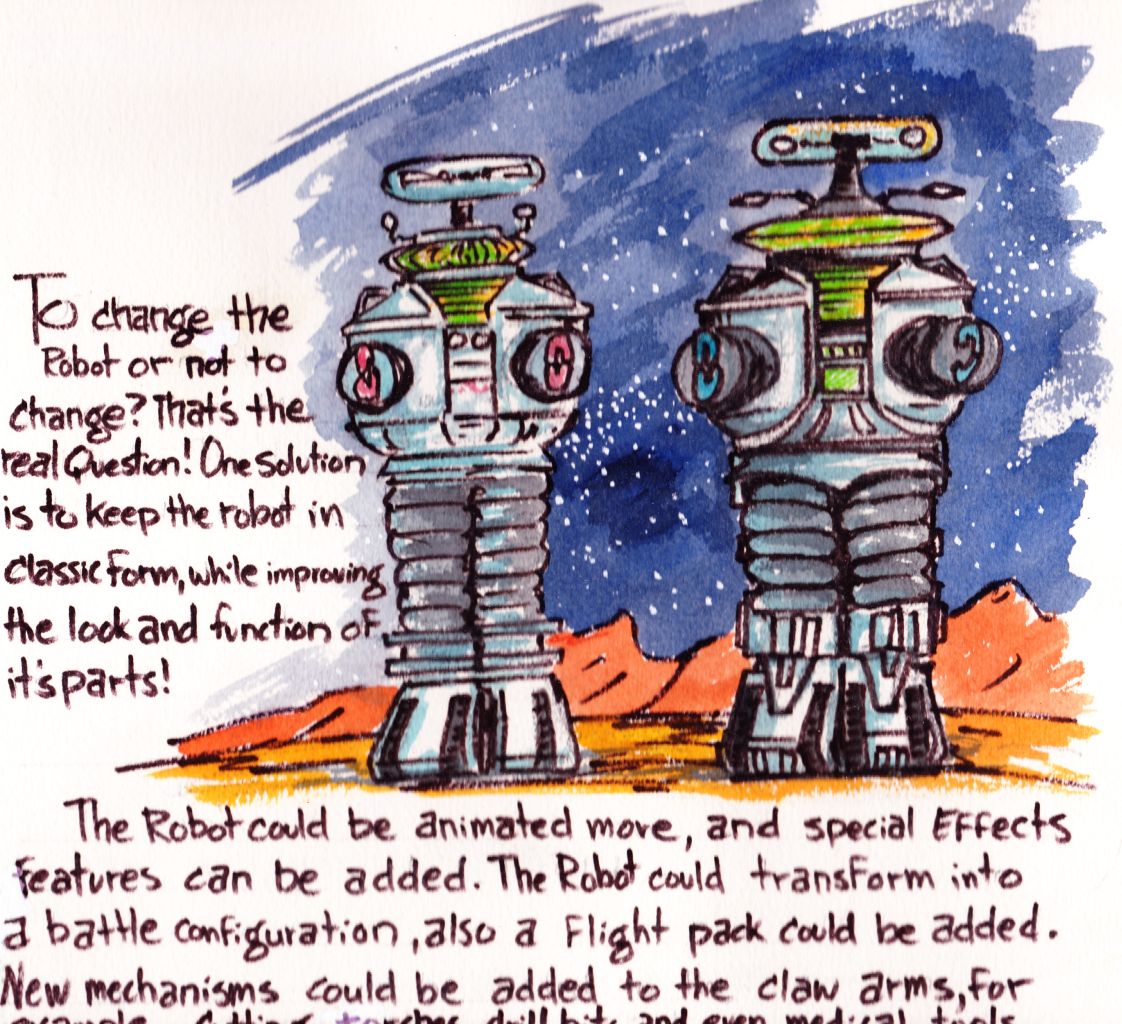 To change the
Robot or not to
change? That's the
real Question! One solution
is to keep the robot in
classic form, while improving
the look and function of
it's parts!
The Robot could be animated more, and special Effects
features can be added. The Robot could transform into
a battle configuration, also a Flight pack could be added.
New mechanisms could be added to the claw arms, for
example, cutting torches, drill bits and even medical tools